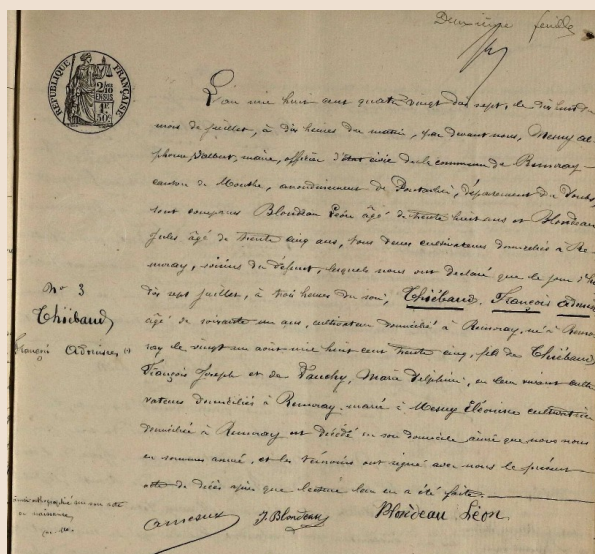 Deuxième feuille
RÉPUBLIQUE FRANÇAISE
2/10 EN SUS
1F 50c
L'an mil huit cent quatre vingt dix sept, le dix huit
mois de juillet, à dix heures du matin, par devant nous, Mesny Al-
phonse Valbert, maire, officier d'état civil de la commune de Remoray
canton de Mouthe, arrondissement de Pontarlier, département du Doubs,
sont comparus Blondeau Léon âgé de trente huit ans et Blondeau
Jules âgé de trente cinq ans, tous deux cultivateurs domiciliés à Re-
moray, voisins du défunt, lesquels nous ont déclaré que le jour d'hier
dix sept juillet, à trois heures du soir, Thiébaud, François Admire
âgé de soixante un ans, cultivateur domicilié à Remoray, né à Remo-
ray le vingt un août mil huit cent trente cinq, fils de Thiébaud,
François Joseph et de Vauchy, Marie Delphine, en leur vivant culti-
vateurs domiciliés à Remoray, marié à Mesny Éléonise cultivatrice
domiciliée à Remoray est décédé en son domicile ainsi que nous nous
en sommes assuré, et les témoins ont signé avec nous le présent
acte de décès après que lecture leur en a été faite.
No 3
Thiébaud
François Admire
orthographié sur son acte
de naissance
J. Blondeau
Blondeau Léon